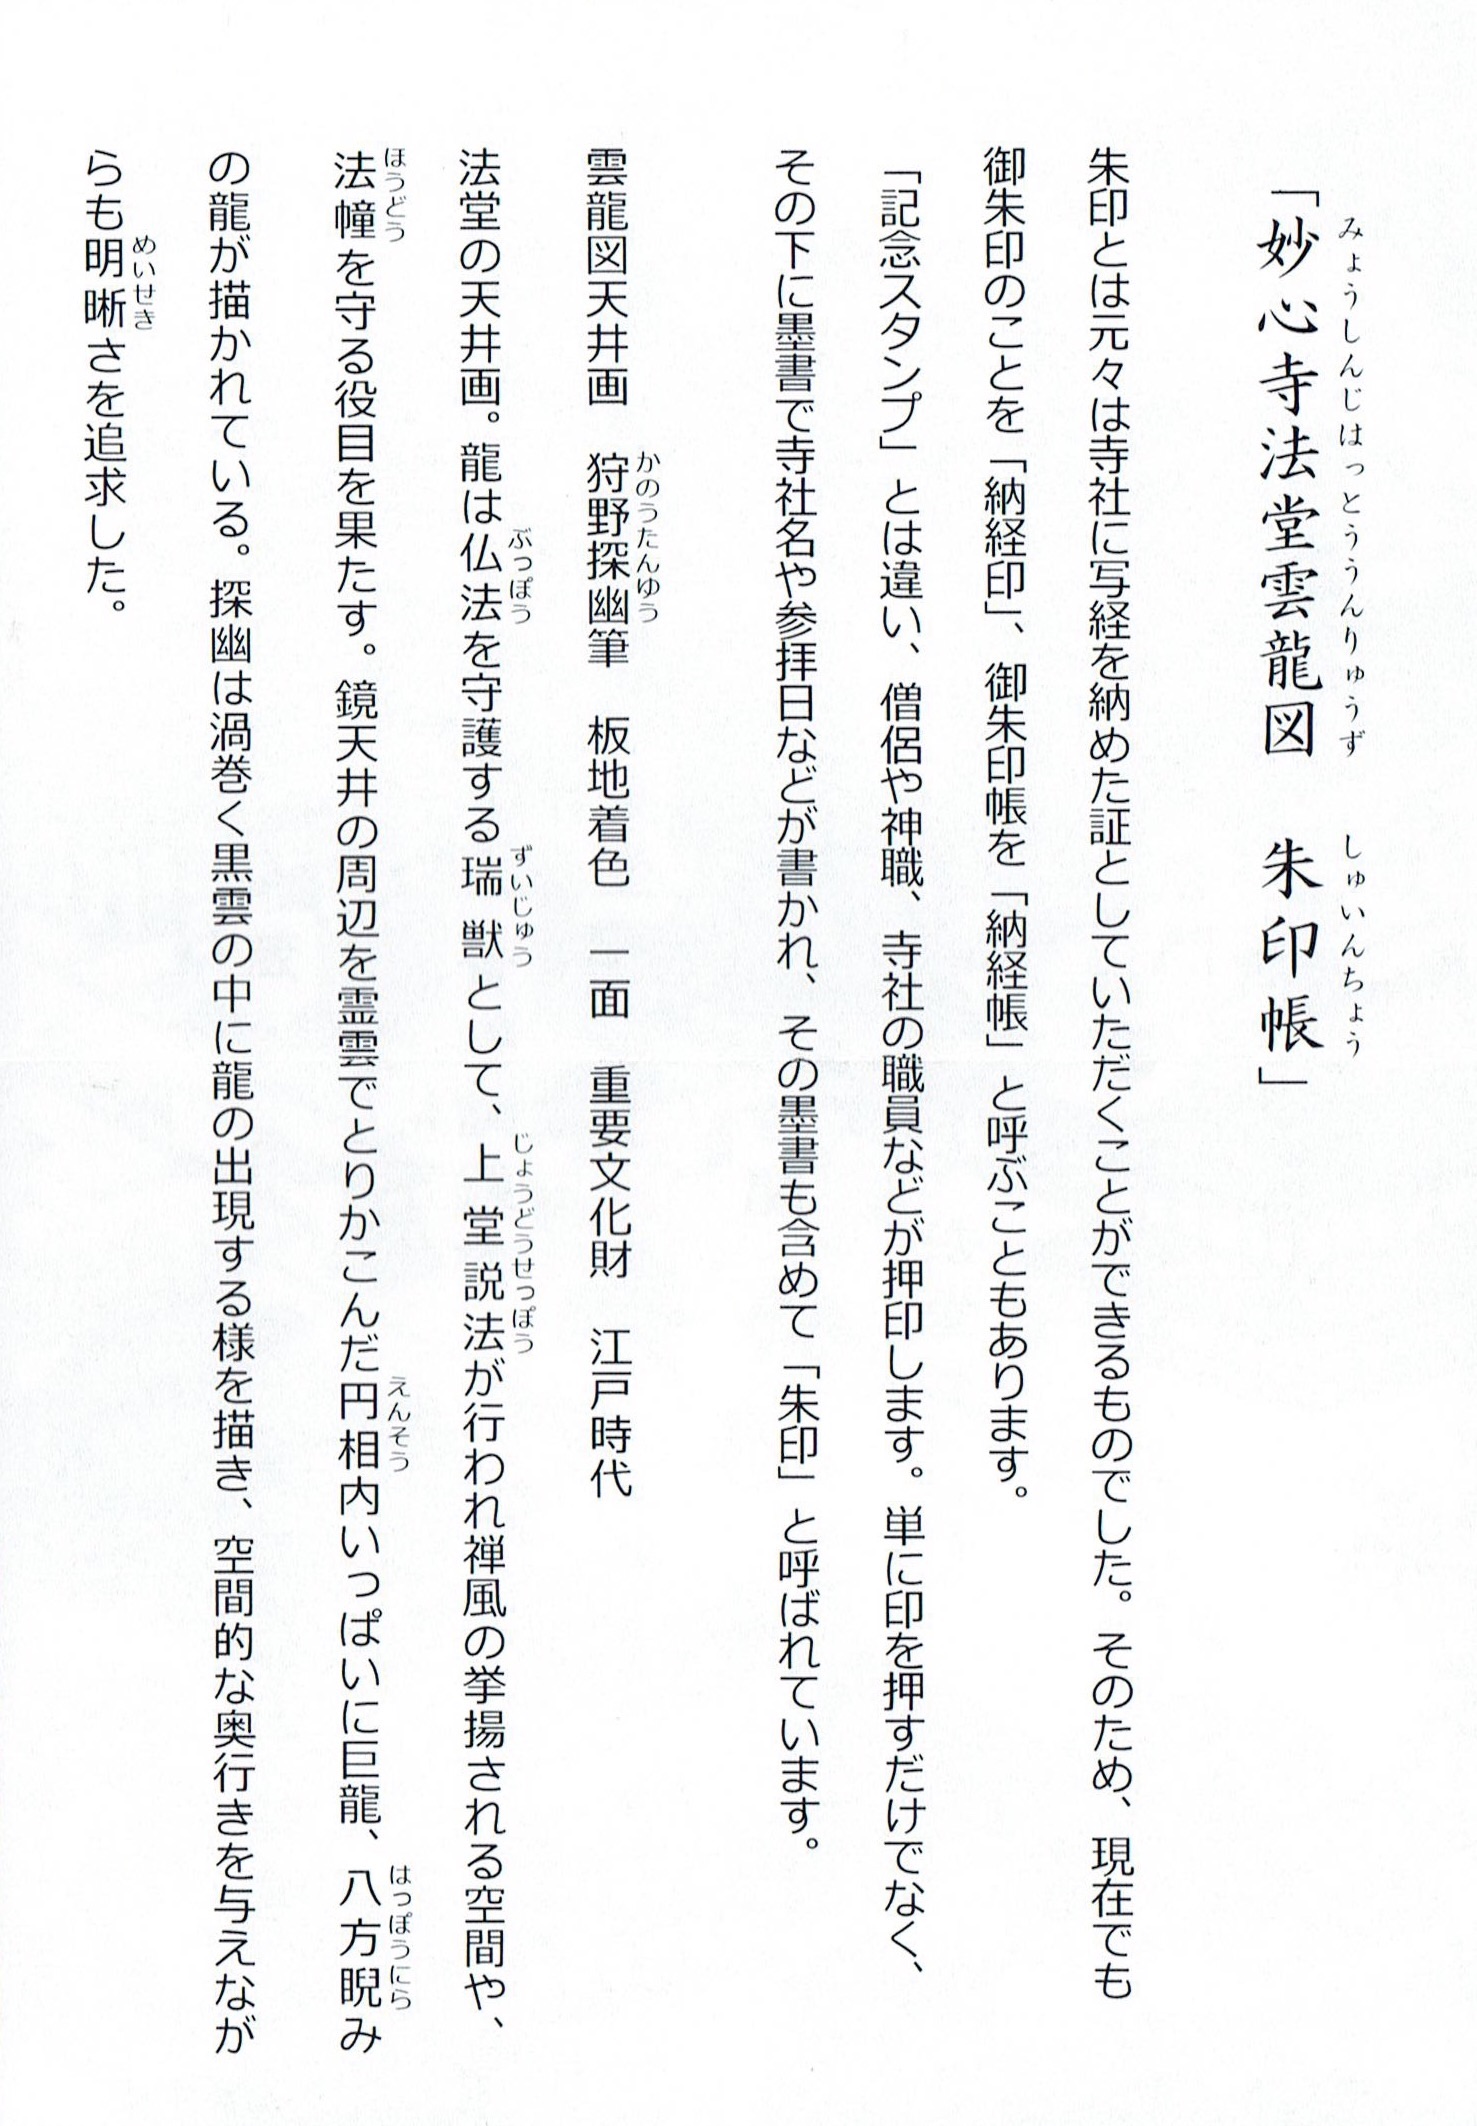 「妙心寺法堂雲龍図　朱印帳」
みょうしんじはっとううんりゅうず　しゅいんちょう
朱印とは元々は寺社に写経を納めた証としていただくことができるものでした。そのため、現在でも
御朱印のことを「納経印」、御朱印帳を「納経帳」と呼ぶこともあります。
「記念スタンプ」とは違い、僧侶や神職、寺社の職員などが押印します。単に印を押すだけでなく、
その下に墨書で寺社名や参拝日などが書かれ、その墨書も含めて「朱印」と呼ばれています。
雲龍図天井画　狩野探幽筆　板地着色　一面　重要文化財　江戸時代
かのうたんゆう
法堂の天井画。龍は仏法を守護する瑞獣として、上堂説法が行われ禅風の挙揚される空間や、
ぶっぽう　ずいじゅう　じょうどうせっぽう
法幢を守る役目を果たす。鏡天井の周辺を霊雲でとりかこんだ円相内いっぱいに巨龍、八方睨み
ほうどう　えんそう　はっぽうにら
の龍が描かれている。探幽は渦巻く黒雲の中に龍の出現する様を描き、空間的な奥行きを与えなが
らも明晰さを追求した。
めいせき